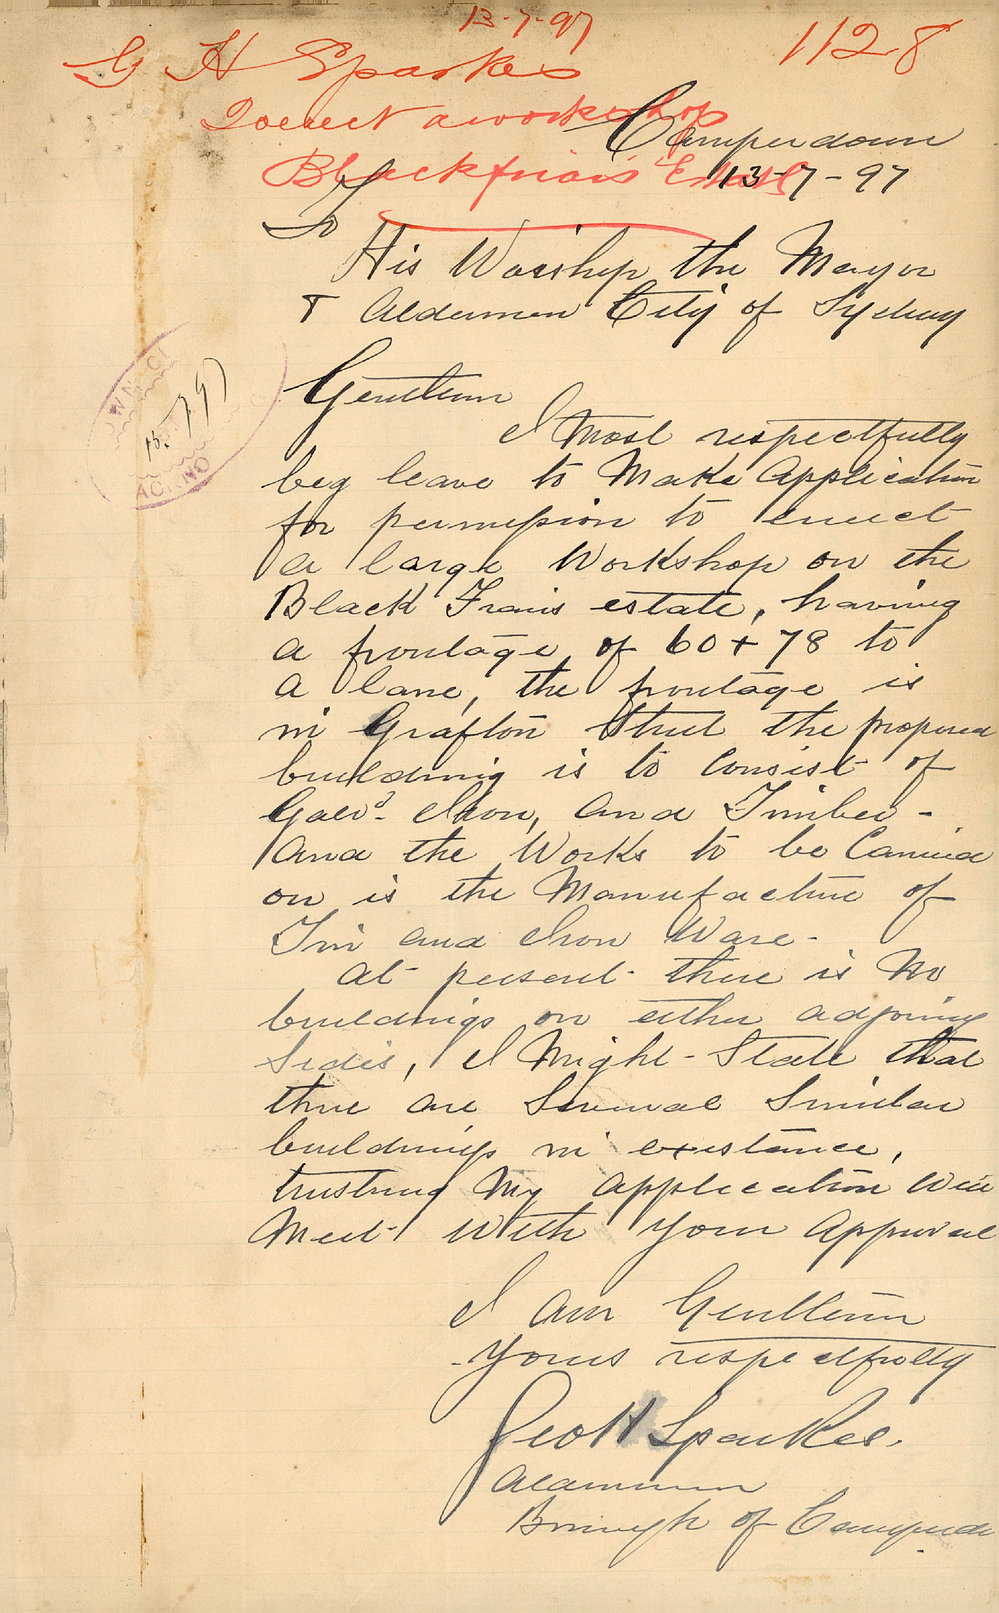 13-7-97
1128
G H Sparkes
To erect a workshop
Blackfriars Estate
Camperdown
13-7-97
To
His Worship the Mayor
& Aldermen City of Sydney
Gentlemen
I Most respectfully
beg leave to Make Application
for permission to erect
a large Workshop on the
Black Friars estate, having
a frontage of 60 + 78 to
a lane, the frontage is
in Grafton Street the proposed
building is to Consist of
Galvd. Iron, and Timber -
and the Works to be Carried
on is the Manufacture of
Tin and Iron Ware -
At present there is No
buildings on either adjoining
Sides, I Might State that
there are Several Similar
buildings in existance,
trusting My application will
Meet With Your Approval
I am Gentlemen
Yours respectfully
Geo H Sparkes.
Alderman
Borough of Camperdown
WN CL
15.7.97
AC. NO